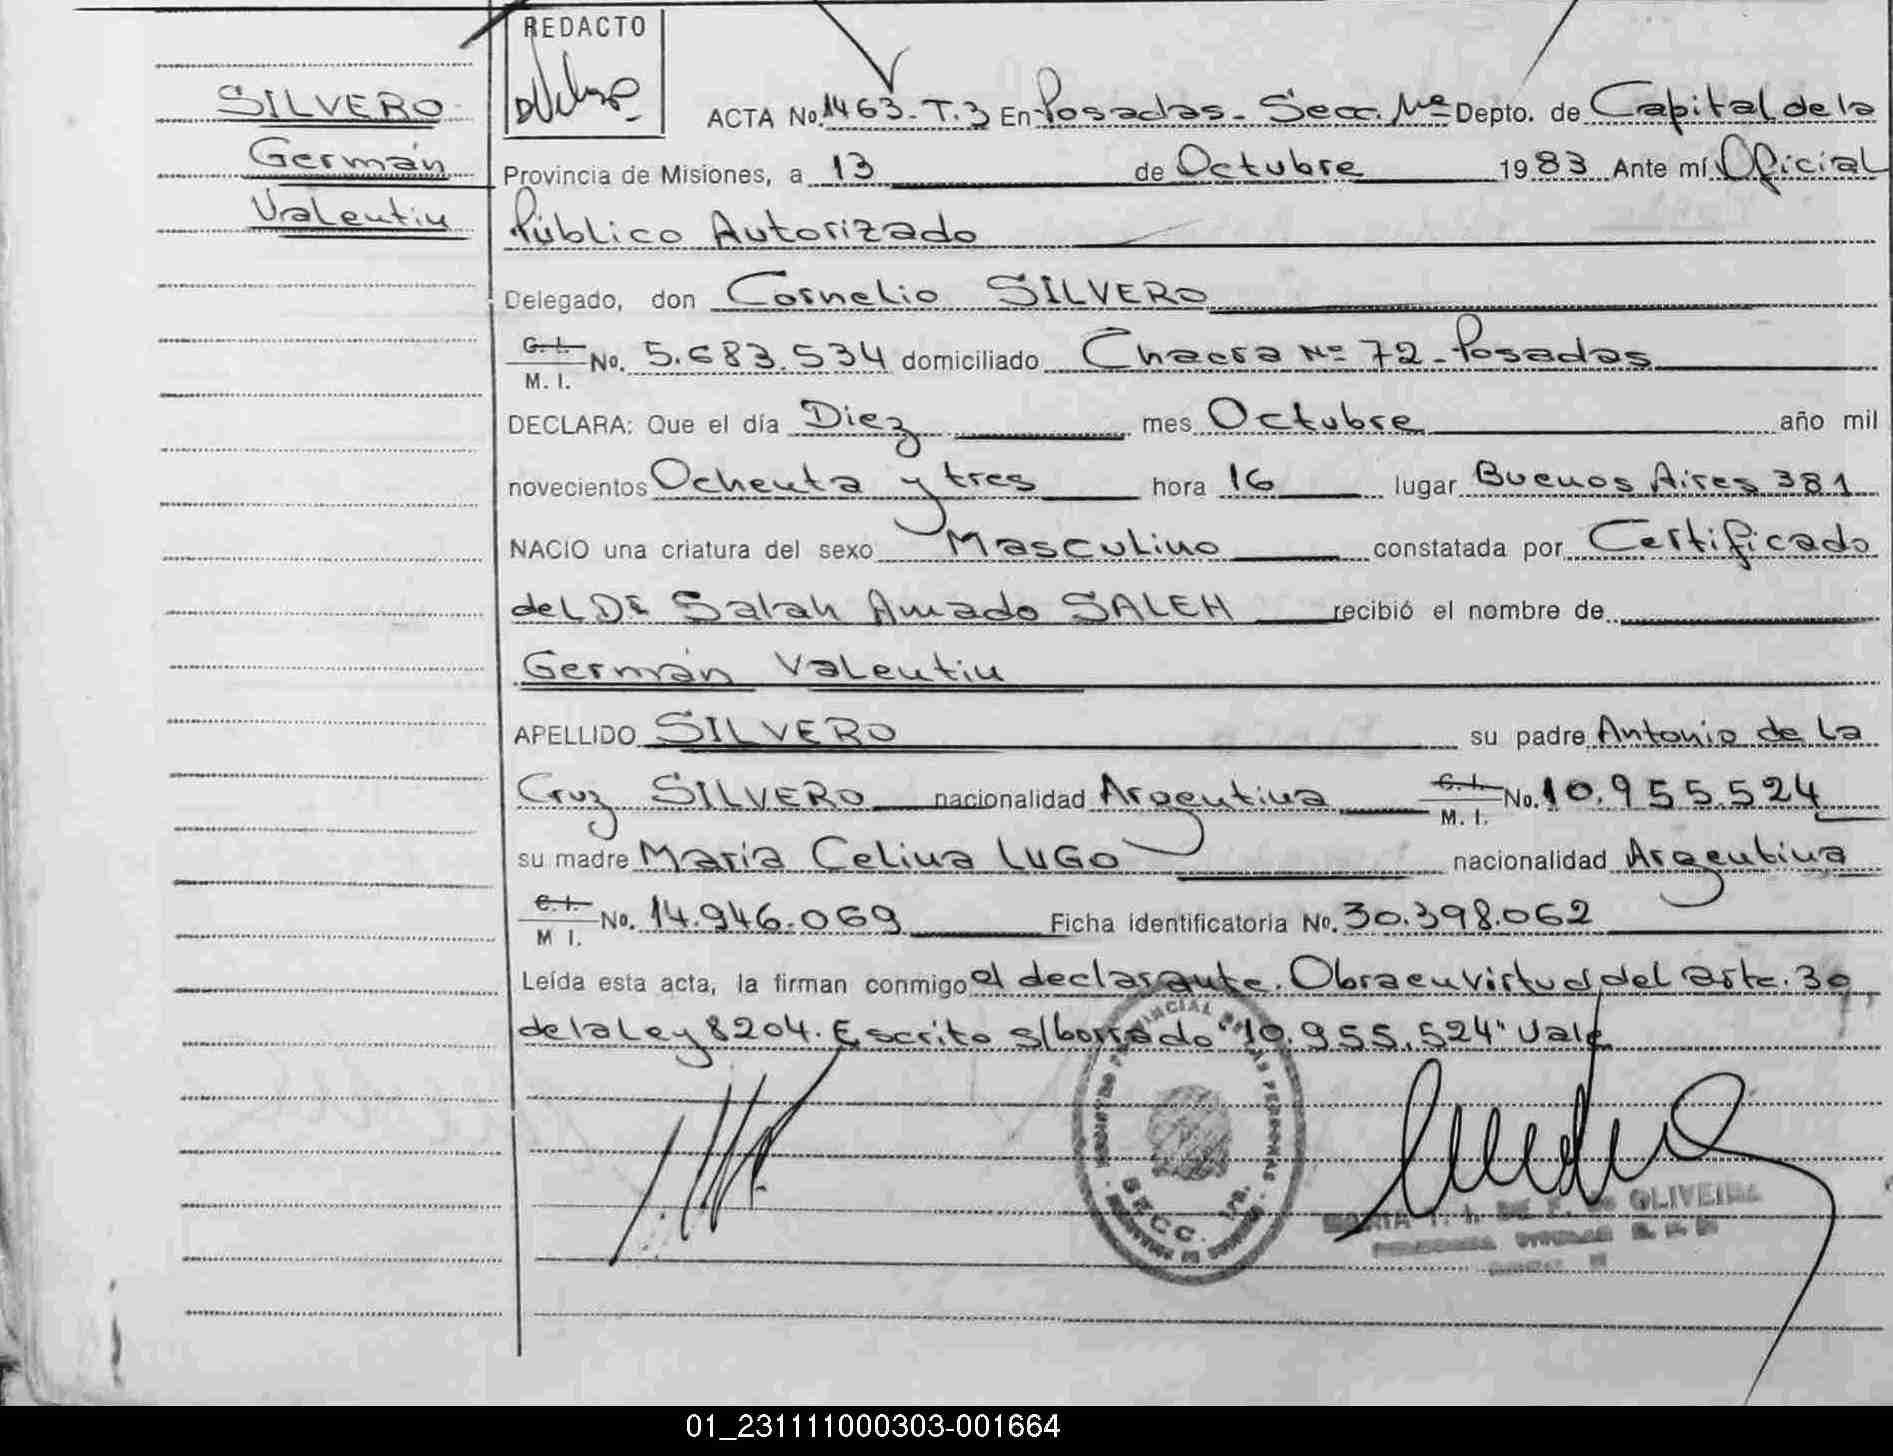 REDACTO
SILVERO
Germán
Valentin
ACTA No. 1463-T.3 En Posadas - Secc. Depto. de Capital de la
Provincia de Misiones, a 13 de Octubre 1983 Ante mí Oficial
Público Autorizado
Delegado, don Cornelio SILVERO
C. I. M. I. No. 5.683.534 domiciliado Chacra Nº 72 - Posadas
DECLARA: Que el día Diez mes Octubre año mil
novecientos Ochenta y tres hora 16 lugar Buenos Aires 381
NACIO una criatura del sexo Masculino constatada por Certificado
del Dr Salah Amado SALEH recibió el nombre de
Germán Valentin
APELLIDO SILVERO su padre Antonio de La
Cruz SILVERO nacionalidad Argentina C. I. M. I. No. 10.955.524
su madre María Celina LUGO nacionalidad Argentina
C. I. M I. No. 14.946.069 Ficha identificatoria No. 30.398.062
Leída esta acta, la firman conmigo el declarante. Obra en virtud del artc. 30
de la Ley 8204. Escrito s/borrado "10.955.524" Vale
REGISTRO PROVINCIAL DE LAS PERSONAS
SECC. 1ra.
OLIVEIRA
01_231111000303-001664